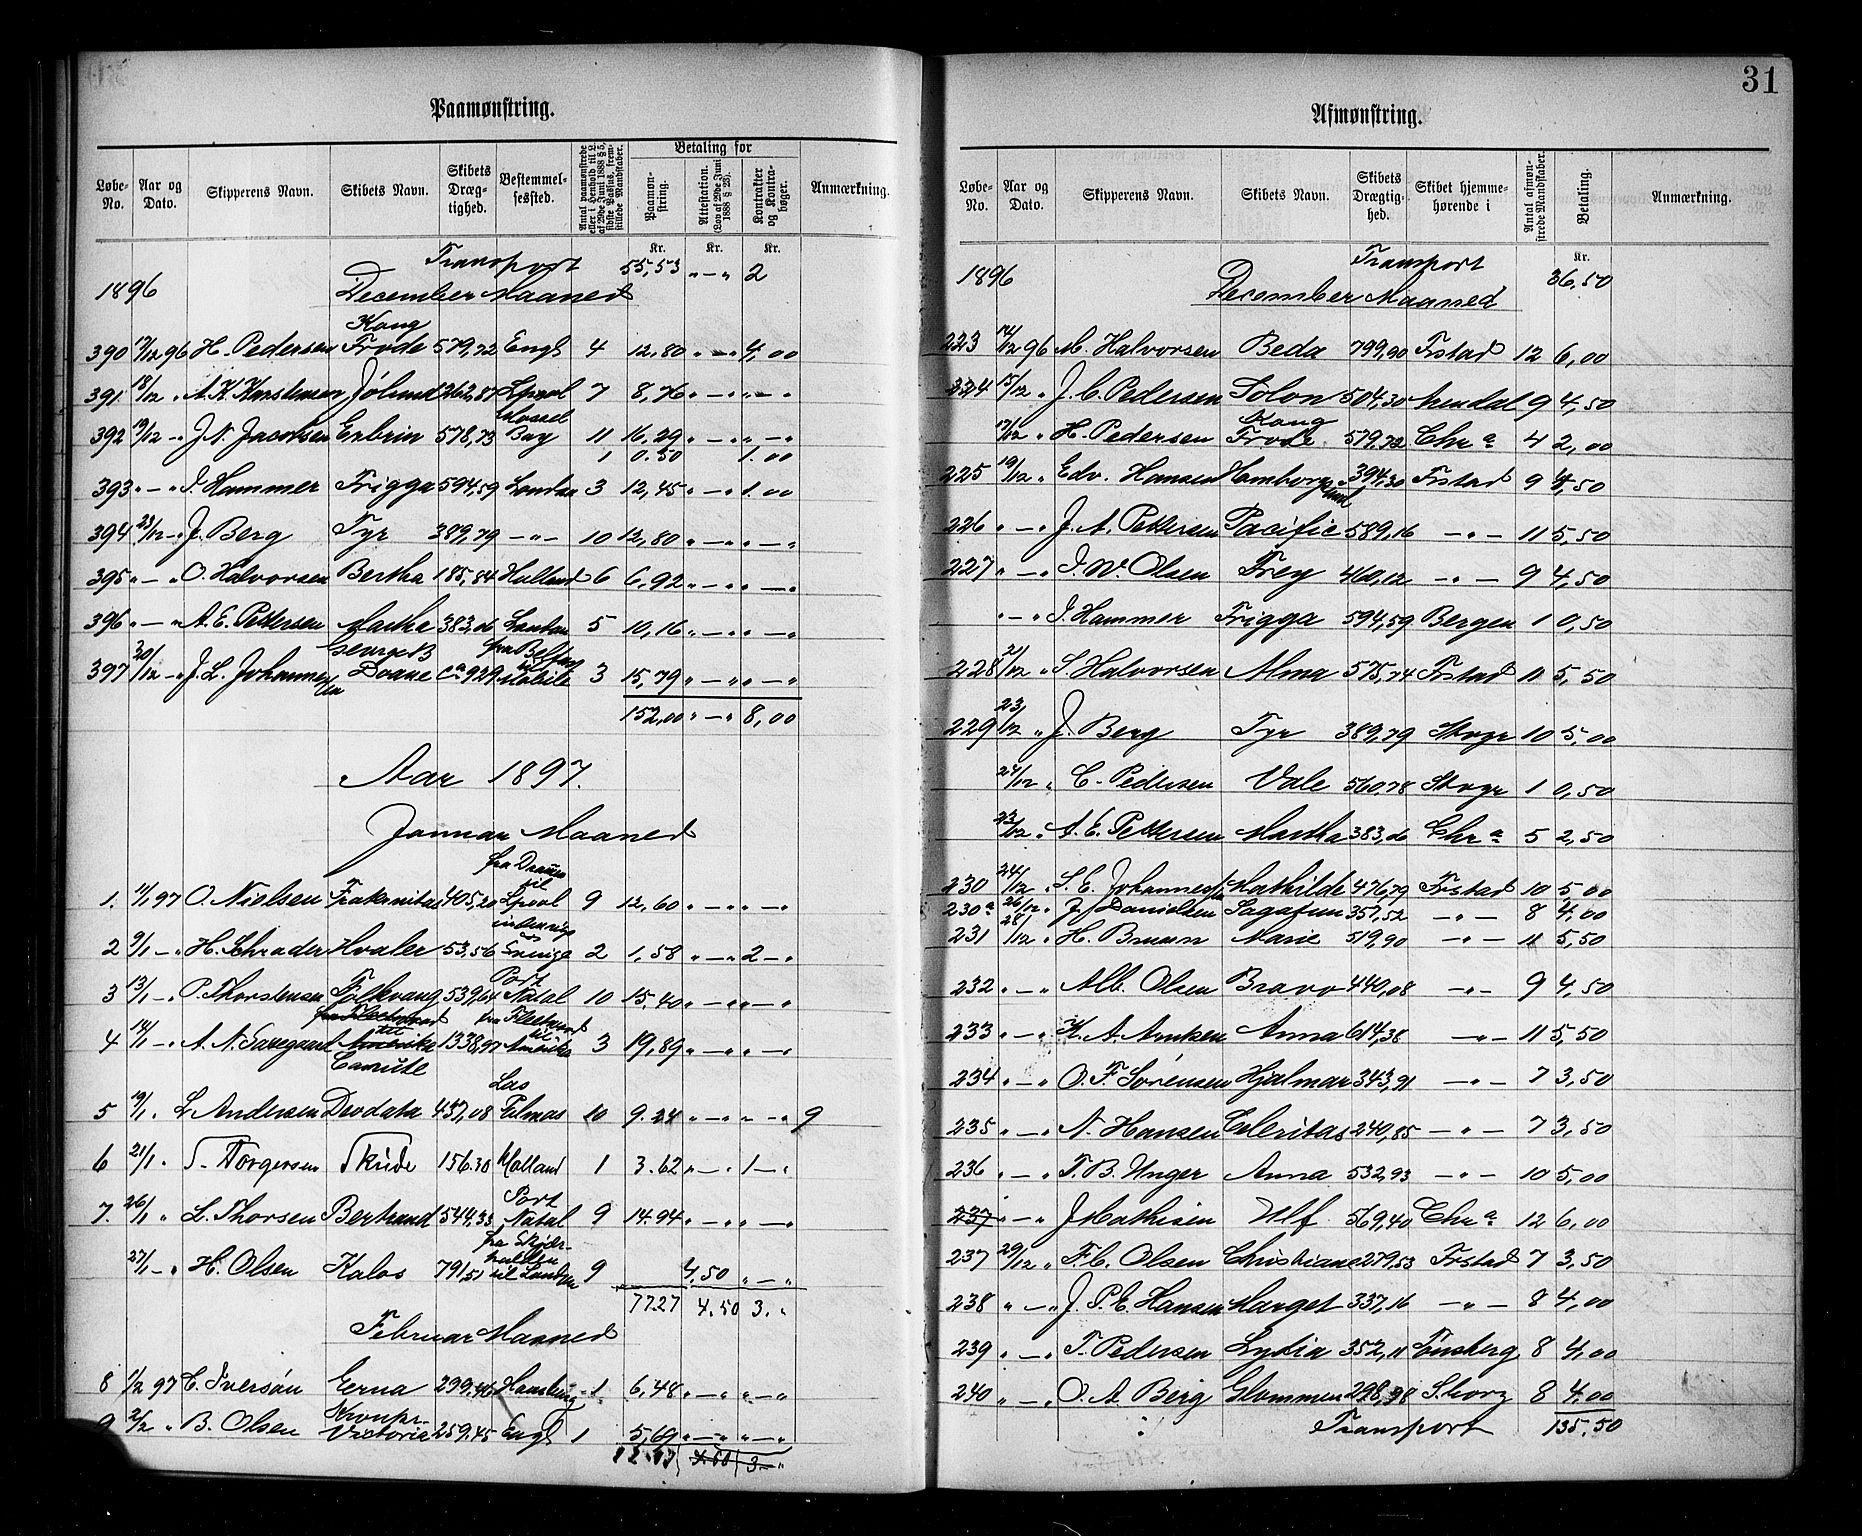 31
Paamønstring.
Løbe-No. Aar og Dato. Skipperens Navn. Skibets Navn. Skibets Dræg-tighed. Bestemmel-sessted. Antal paamønstrede eller i Henhold til L. af 29de Juni 1888 § 5, sidste Passus, frem-stillede Mandskaber. Betaling for Paamøn-string. Attestation. (Lov af 29de Juni 1888 § 23). Kontrakter og Kontra-bøger. Anmærkning.
Kr. Kr. Kr.
Transport 55,53 " — " 2
1896 December Maaned
Kong
390 17/12 96 H. Pedersen Frode 579,72 Engl 4 12,80 " — " 4,00
391 18/12 " A. K. Karstensen Jölund 262,87 Lpool 7 8,76 " — " " — "
Mossel
392 19/12 — " J. N. Jacobsen Erbrin 578,73 Bay 11 16,29 " — " " — "
1 0.50 1.00
393 " — " J. Hammer Frigga 594,59 London 3 12,45 " — " 1.00
394 23/12 — " J. Berg Tyr 389,79 — " — 10 12,80 " — " " — "
395 " — " O. Halvorsen Bertha 185,84 Holland 6 6,92 " — " " — "
396 " — " A. E. Pettersen Martha 383,06 London 5 10,16 " — " " — "
George B fra Belfast
397 30/12 — " J. L. Johannesen Doane Ca 929 til Mobile 3 15,79 " — " " — "
152,00 " — " 8,00
Aar 1897.
Januar Maaned
fra Drammen til
1. 11/1 97 O. Nielsen Frakanitas 405,20 Lpool 9 12,60 " — " " — "
indenrigs
2 9/1 — " H. Schrader Hvaler 53,56 Sverige 2 1,58 " — " 2 — "
Port
3 13/1 — " P. Thorstensen Folkvang 539,64 Natal 10 15,40 " — " " — "
fra Fleetwood fra Fleetwood
til til
4 14/1 — " A. N. Saxegaard Amerika 1338,97 Amerika 3 19,89 " — " " — "
Canute
Las
5 19/1 . L. Andersen Deodata 437,08 Palmas 10 9.24 " — " " — " 9
6 21/1 . T. Torgersen Skude 156.30 Holland 1 3.62 " — " 1 — "
Port
7. 26/1 " L. Thorsen Bertrand 544,33 Natal 9 14.94 " — " " — "
fra Skjær-
halden
27/1 — " H. Olsen Kalos 791,51 til London 9 4,50 " — "
77.27 4.50 3. "
Februar Maaned
8 1/2 97 C. Iversøn Erna 299,46 Hamburg 1 6,48 " — " " — "
Kronpr.
9 2/2 " B. Olsen Victoria 259.45 Engl 1 5,69 " — " " — "
12.17 4.50 3 — "
Afmønstring.
Løbe-No. Aar og Dato. Skipperens Navn. Skibets Navn. Skibets Drægtig-hed. Skibet hjemme-hørende i Antal afmøn-strede Mandskaber. Betaling. Anmærkning.
Kr.
Transport 36,50
1896 December Maaned
223 14/12 96 M. Halvorsen Beda 799,90 Frstad 12 6,00
224 15/12 " J. C. Pedersen Solon 504,30 Arendal 9 4,50
Kong
17/12 " H. Pedersen Frode 579,72 Chra 4 2,00
225 19/12 " Edv. Hansen Hamborgsund 394,30 Frstad 9 4,50
226 " — " J. A. Pettersen Pacific 589,16 — " — 11 5,50
227 " — " J. W. Olsen Frey 460,12 — " — 9 4,50
" — " J. Hammer Frigga 594,59 Bergen 1 0,50
228 21/12 " S. Halvorsen Alma 575,74 Frstad 11 5,50
229 23/12 " J. Berg Tyr 389,79 Stvgr 10 5,00
24/12 " C. Pedersen Vale 560,78 Stvgr 1 0,50
23/12 " A. E. Pettersen Martha 383,06 Chra 5 2,50
230 24/12 " S. E. Johannesen Mathilde 476,79 Frstad 10 5,00
230a 26/12 " J. Danielsen Sagatun 357,52 — " — 8 4,00
231 28/12 " H. Bruun Marie 519,90 — " — 11 5,50
232 " — " Alb. Olsen Bravo 440,08 — " — 9 4,50
233 " — " K. A. Arntsen Anna 614,38 — " — 11 5,50
234 " — " O. F. Sörensen Hjalmar 343,91 — " — 7 3,50
235 " — " N. Hansen Celeritas 240,85 — " — 7 3,50
236 " — " T. B. Unger Anna 532,93 — " — 10 5,00
237 " — " J. Mathisen Ulf 569,40 Chra 12 6,00
237 29/12 " F. C. Olsen Christiane 279,53 Frstad 7 3,50
238 " — " J. P. E. Hansen Marget 337,16 — " — 8 4,00
239 " — " T. Pedersen Lydia 352,11 Tønsberg 8 4,00
240 " — " O. A. Berg Glommen 298,98 S.borg 8 4,00
Transport 135,50